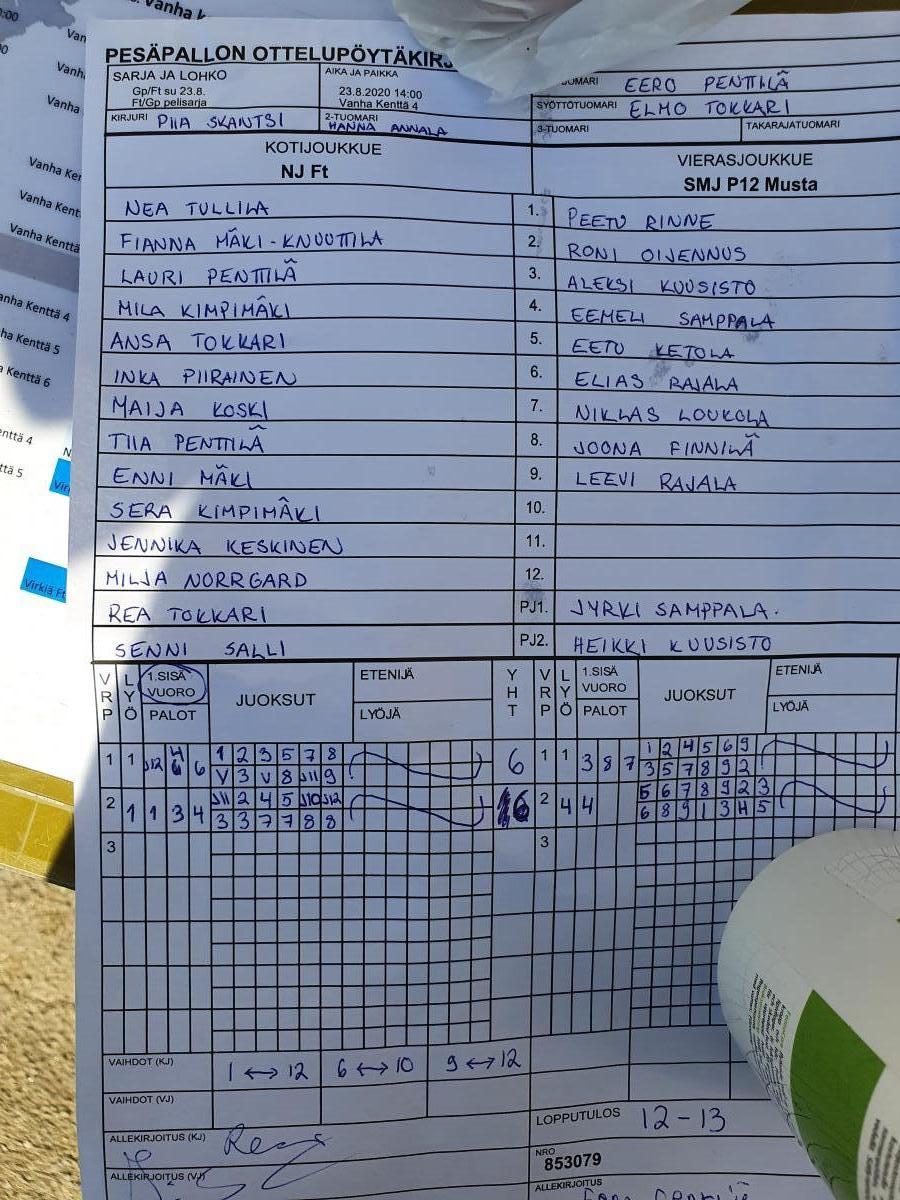 PESÄPALLON OTTELUPÖYTÄKIRJ
SARJA JA LOHKO
Gp/Ft su 23.8.
Ft/Gp pelisarja
AIKA JA PAIKKA
23.8.2020 14:00
Vanha Kenttä 4
EERO PENTTILÄ
SYÖTTÖTUOMARI ELMO TOKKARI
KIRJURI PIIA SKANTSI
2-TUOMARI
HANNA ANNALA
3-TUOMARI
TAKARAJATUOMARI
KOTIJOUKKUE
NJ Ft
VIERASJOUKKUE
SMJ P12 Musta
NEA TULLILA 1. PEETU RINNE
FIANNA MÄKI-KNUUTTILA 2. RONI OIJENNUS
LAURI PENTTILÄ 3. ALEKSI KUUSISTO
MILA KIMPIMÄKI 4. EEMELI SAMPPALA
ANSA TOKKARI 5. EETU KETOLA
INKA PIIRAINEN 6. ELIAS RAJALA
MAIJA KOSKI 7. NIKLAS LOUKOLA
TIIA PENTTILÄ 8. JOONA FINNILÄ
ENNI MÄKI 9. LEEVI RAJALA
SERA KIMPIMÄKI 10.
JENNIKA KESKINEN 11.
MILJA NORRGARD 12.
REA TOKKARI PJ1. JYRKI SAMPPALA.
SENNI SALLI PJ2. HEIKKI KUUSISTO
VRP LYÖ 1.SISÄ VUORO PALOT JUOKSUT ETENIJÄ LYÖJÄ YHT VRP LYÖ 1.SISÄ VUORO PALOT JUOKSUT ETENIJÄ LYÖJÄ
1 1 J12 6 1 2 3 5 7 8 6 1 1 3 8 7 1 2 4 5 6 9
V 3 V 8 J11 9 3 5 7 8 9 2
2 1 1 3 4 J11 2 4 5 J10 J12 2 4 4 5 6 7 8 9 2 3
3 3 7 7 8 8 6 8 9 1 3 4 5
3 3
VAIHDOT (KJ) 1 ↔ 12 6 ↔ 10 9 ↔ 12
VAIHDOT (VJ)
LOPPUTULOS 12-13
ALLEKIRJOITUS (KJ)
NRO
853079
ALLEKIRJOITUS (VJ)
ALLEKIRJOITUS
Vanha Kenttä 4